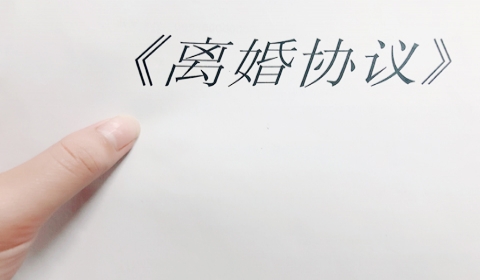 《离婚协议》